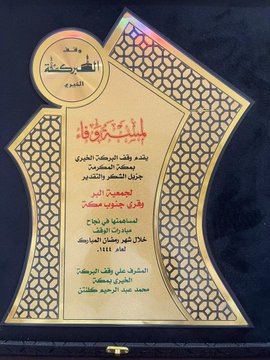 وقف
البركة
الخيري
لمسة وفاء
يقدم وقف البركة الخيري
بمكة المكرمة
جزيل الشكر والتقدير
لجمعية البر
وفرى جنوب مكة
لمساهمتها في نجاح
مبادرات الوقف
خلال شهر رمضان المبارك
لعام ١٤٤٤هـ.
المشرف علي وقف البركة
الخيري بمكة
محمد عبد الرحيم كلنتن